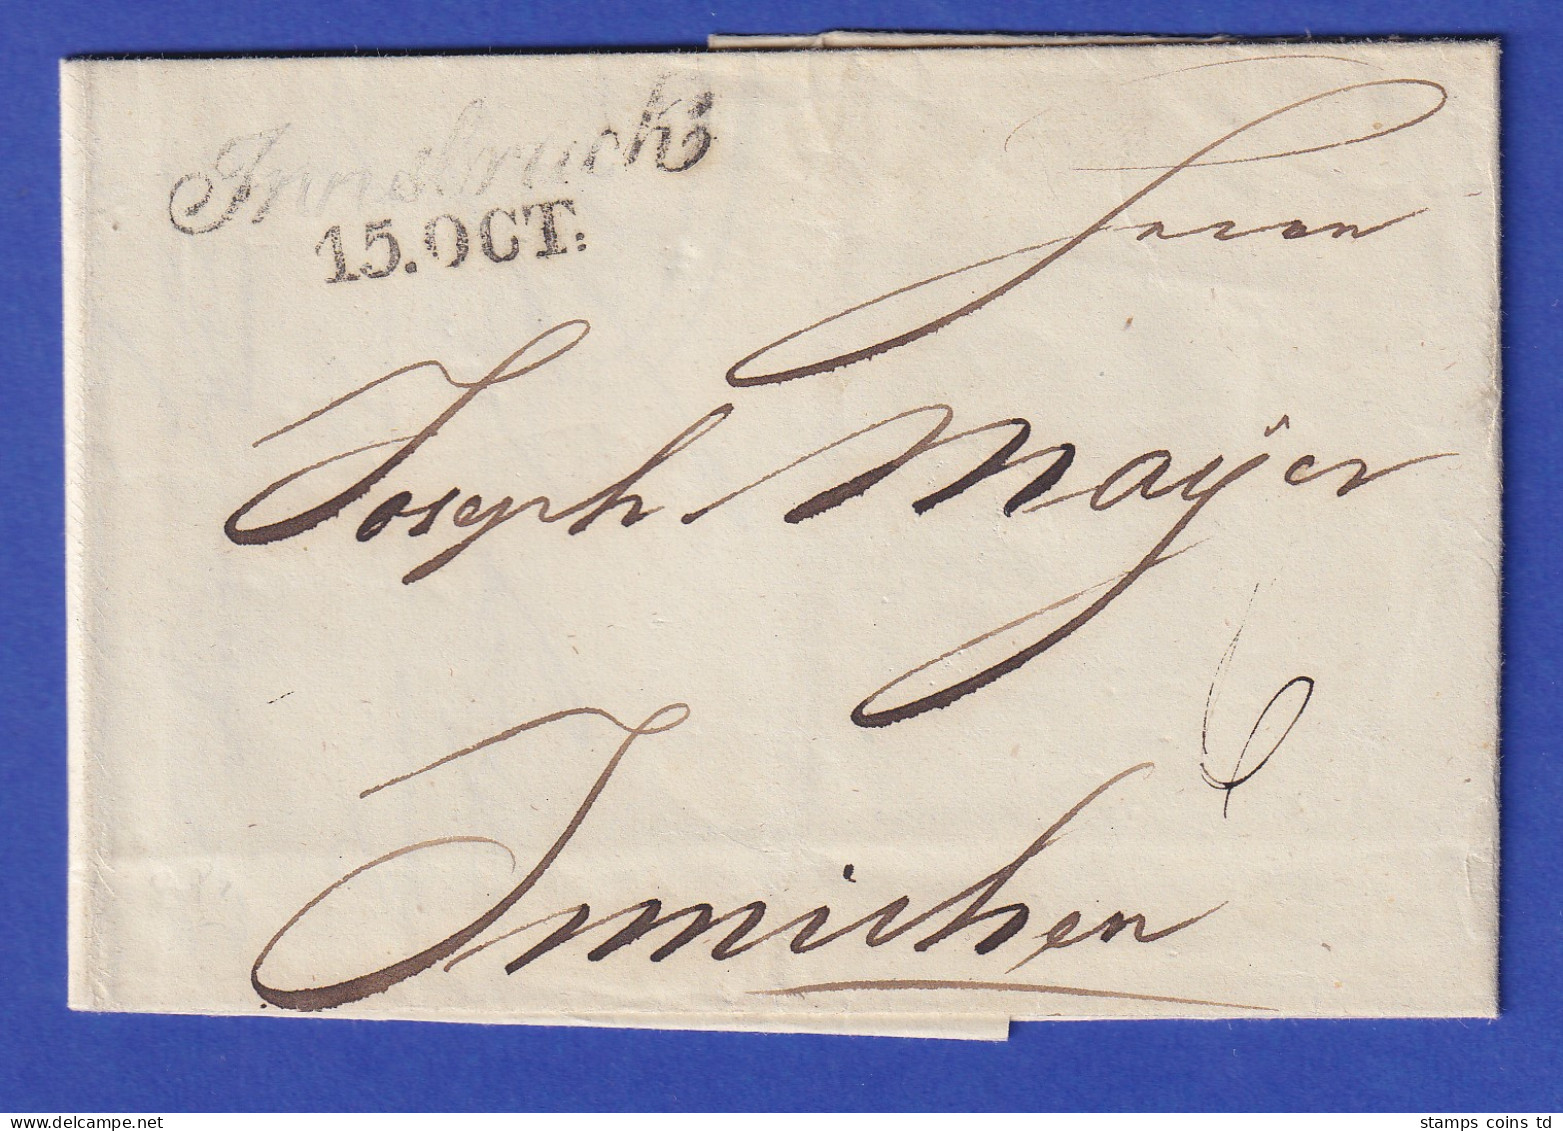 Innsbruck
15. OCT:
Herrn
Joseph Mayer
Innichen
6
www.delcampe.net
stamps coins td